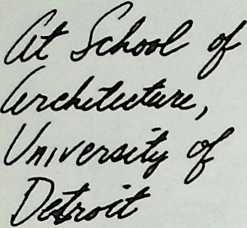 At School of
Architecture,
University of
Detroit